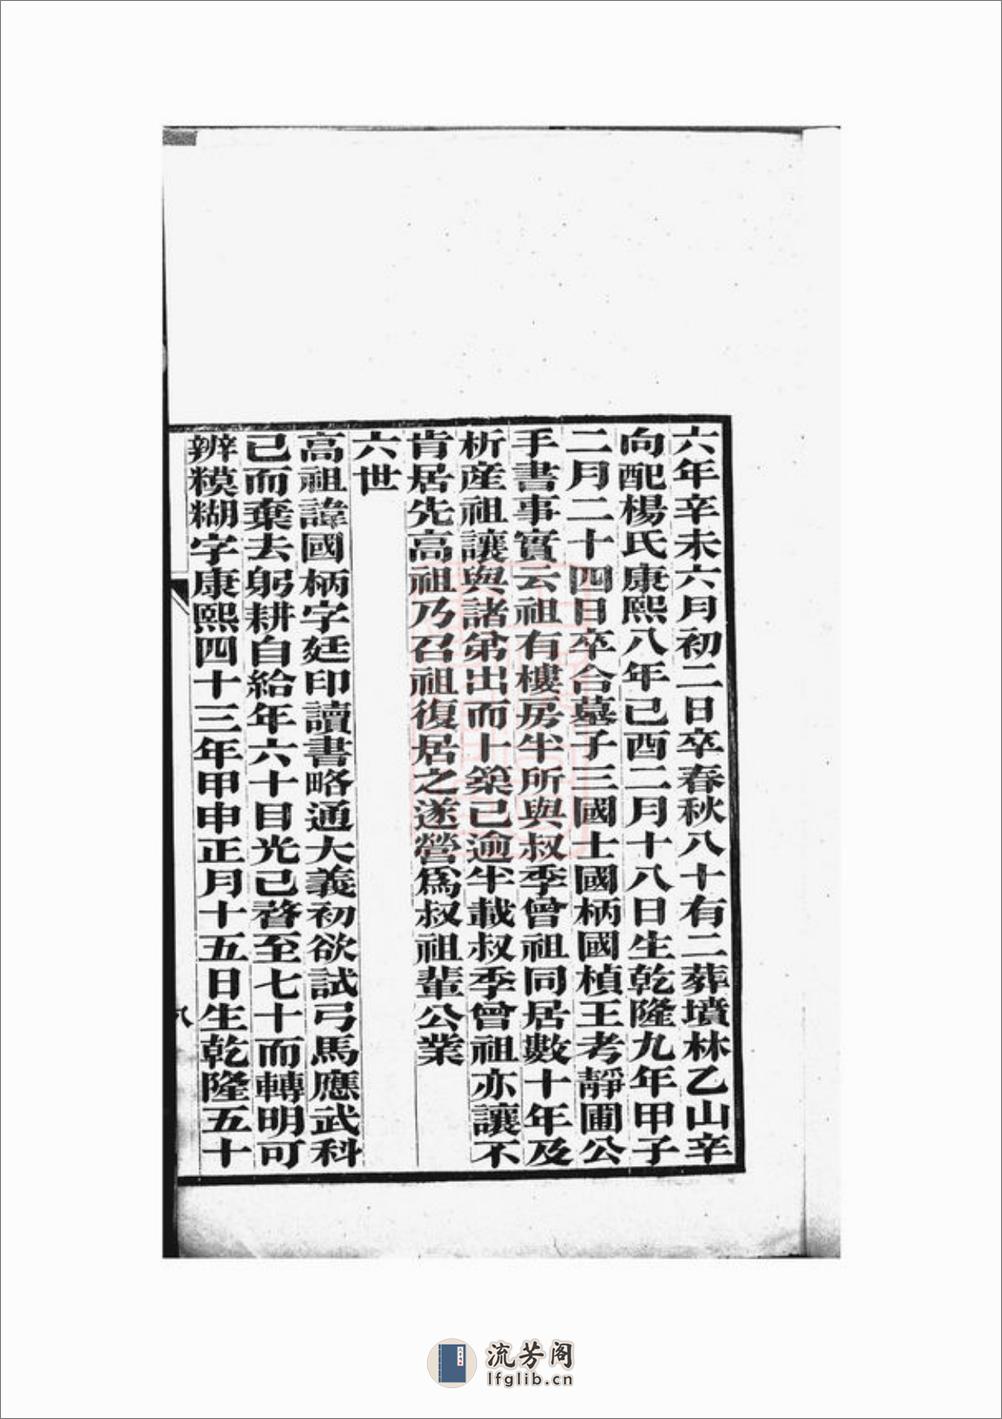 六年辛未六月初二日卒春秋八十有二葬墳林乙山辛
向配楊氏康熙八年己酉二月十八日生乾隆九年甲子
二月二十四日卒合墓子三國士國柄國楨王考靜圃公
手書事實云祖有樓房半所與叔季曾祖同居數十年及
析産祖讓與諸弟出而卜築已逾半載叔季曾祖亦讓不
肯居先高祖乃召祖復居之遂營爲叔祖輩公業
六世
高祖諱國柄字廷印讀書略通大義初欲試弓馬應武科
已而棄去躬耕自給年六十目光已瞀至七十而轉明可
辨糢糊字康熙四十三年甲申正月十五日生乾隆五十
八
流芳阁
lfglib.cn